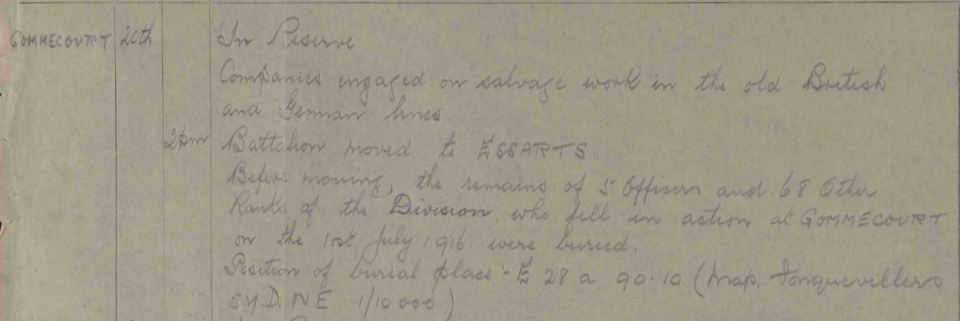 GOMMECOURT 20th In Reserve
Companies engaged on salvage work in the old British
and German lines.
2pm Battalion moved to ESSARTS.
Before moving, the remains of 5 Officers and 68 Other
Ranks of the Division, who fell in action at GOMMECOURT
on the 1st July 1916 were buried.
Position of burial place :- E 28 a 90.10 (Map, Fonquevillers
57.D.NE 1/10000)